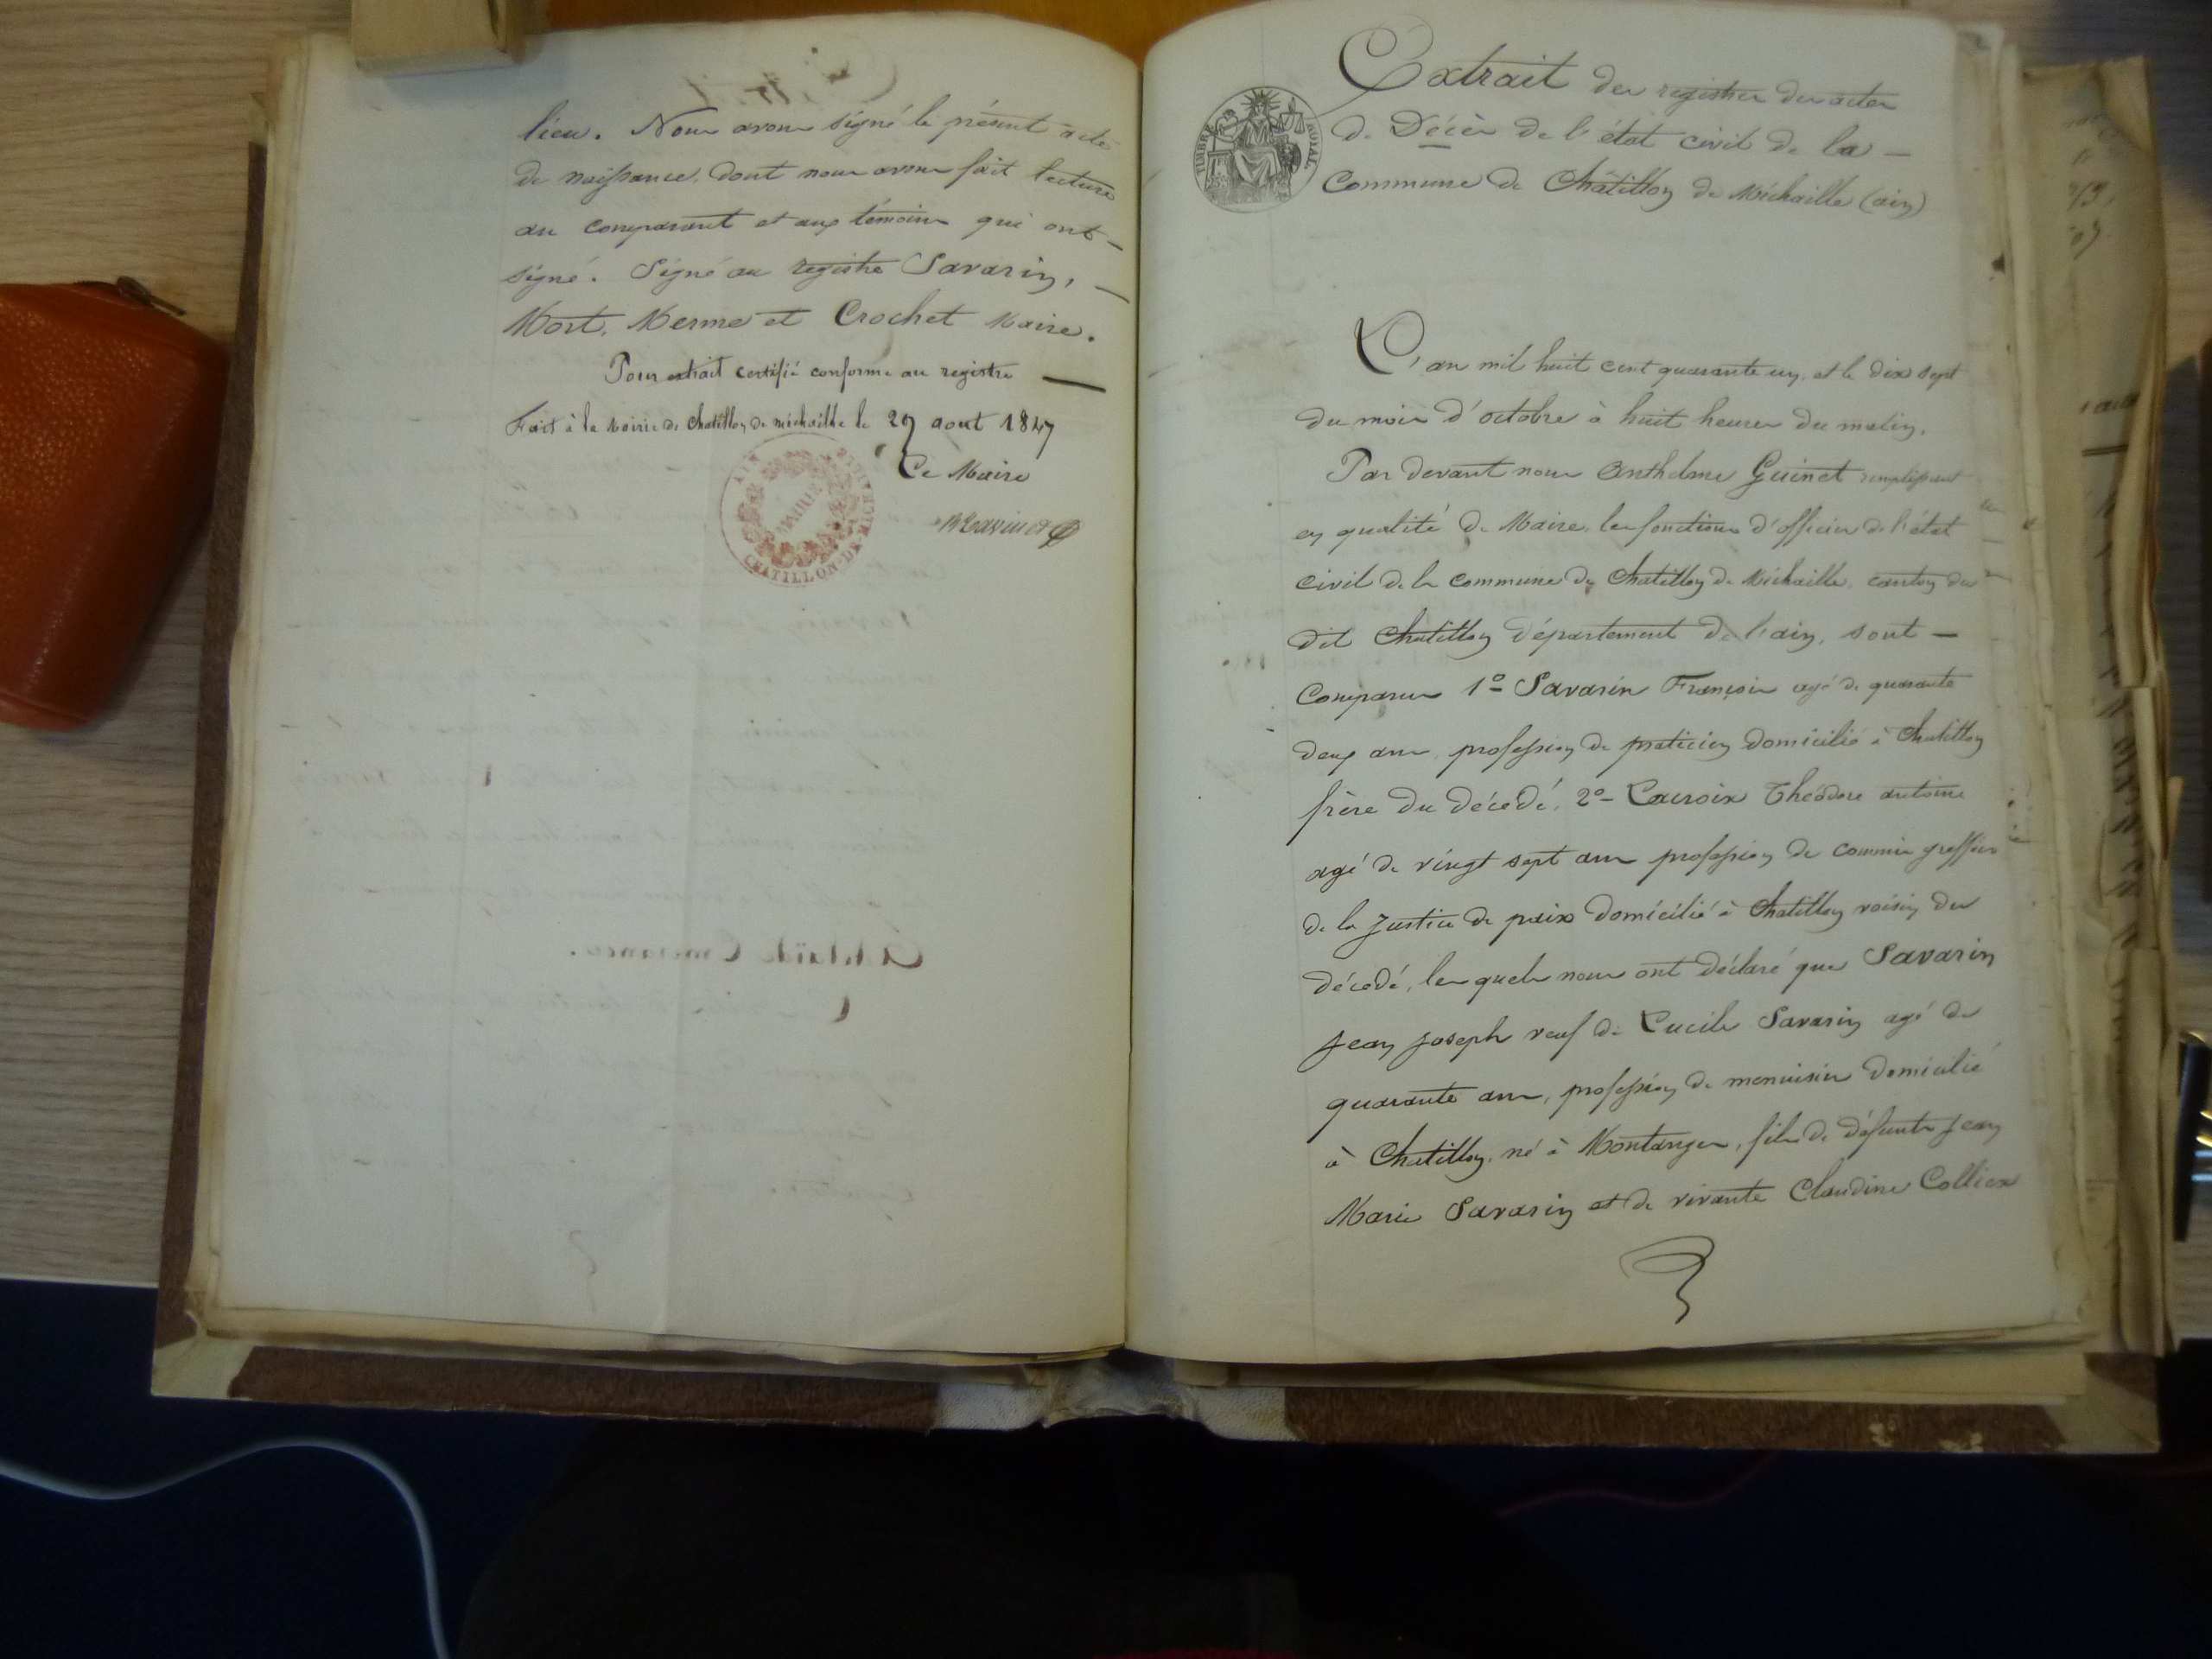 lieu. Nous avons signé le présent acte
de naissance, dont nous avons fait lecture
au comparant et aux témoins qui ont
signé. Signé au registre Savarin,
Mort, Merme et Crochet Maire.
Pour extrait certifié conforme au registre
Fait à la Mairie de Chatillon de michaille le 27 aout 1847
Le Maire
MAIRIE
AIN
CHATILLON-DE-MICHAILLE
TIMBRE ROYAL
Extrait des registres des actes
de Décès de l'état civil de la
Commune de Châtillon de Michaille (ain)
L'an mil huit cent quarante un, et le dix sept
du mois d'octobre à huit heures du matin.
Par devant nous Anthelme Guinet remplissant
en qualité de Maire, les fonctions d'officier de l'état
civil de la commune de Chatillon de Michaille, canton du
dit Chatillon département de l'ain, sont
Comparus 1º Savarin François agé de quarante
deux ans, profession de praticien domicilié à Chatillon
frère du décédé, 2º Lacroix Théodore antoine
agé de vingt sept ans profession de commis greffier
de la Justice de paix domicilié à Chatillon voisin du
décédé, lesquels nous ont déclaré que Savarin
Jean Joseph veuf de Lucile Savarin agé de
quarante ans, profession de menuisier domicilié
à Chatillon, né à Montanges, fils de défunts Jean
Marie Savarin et de vivante Claudine Colliex